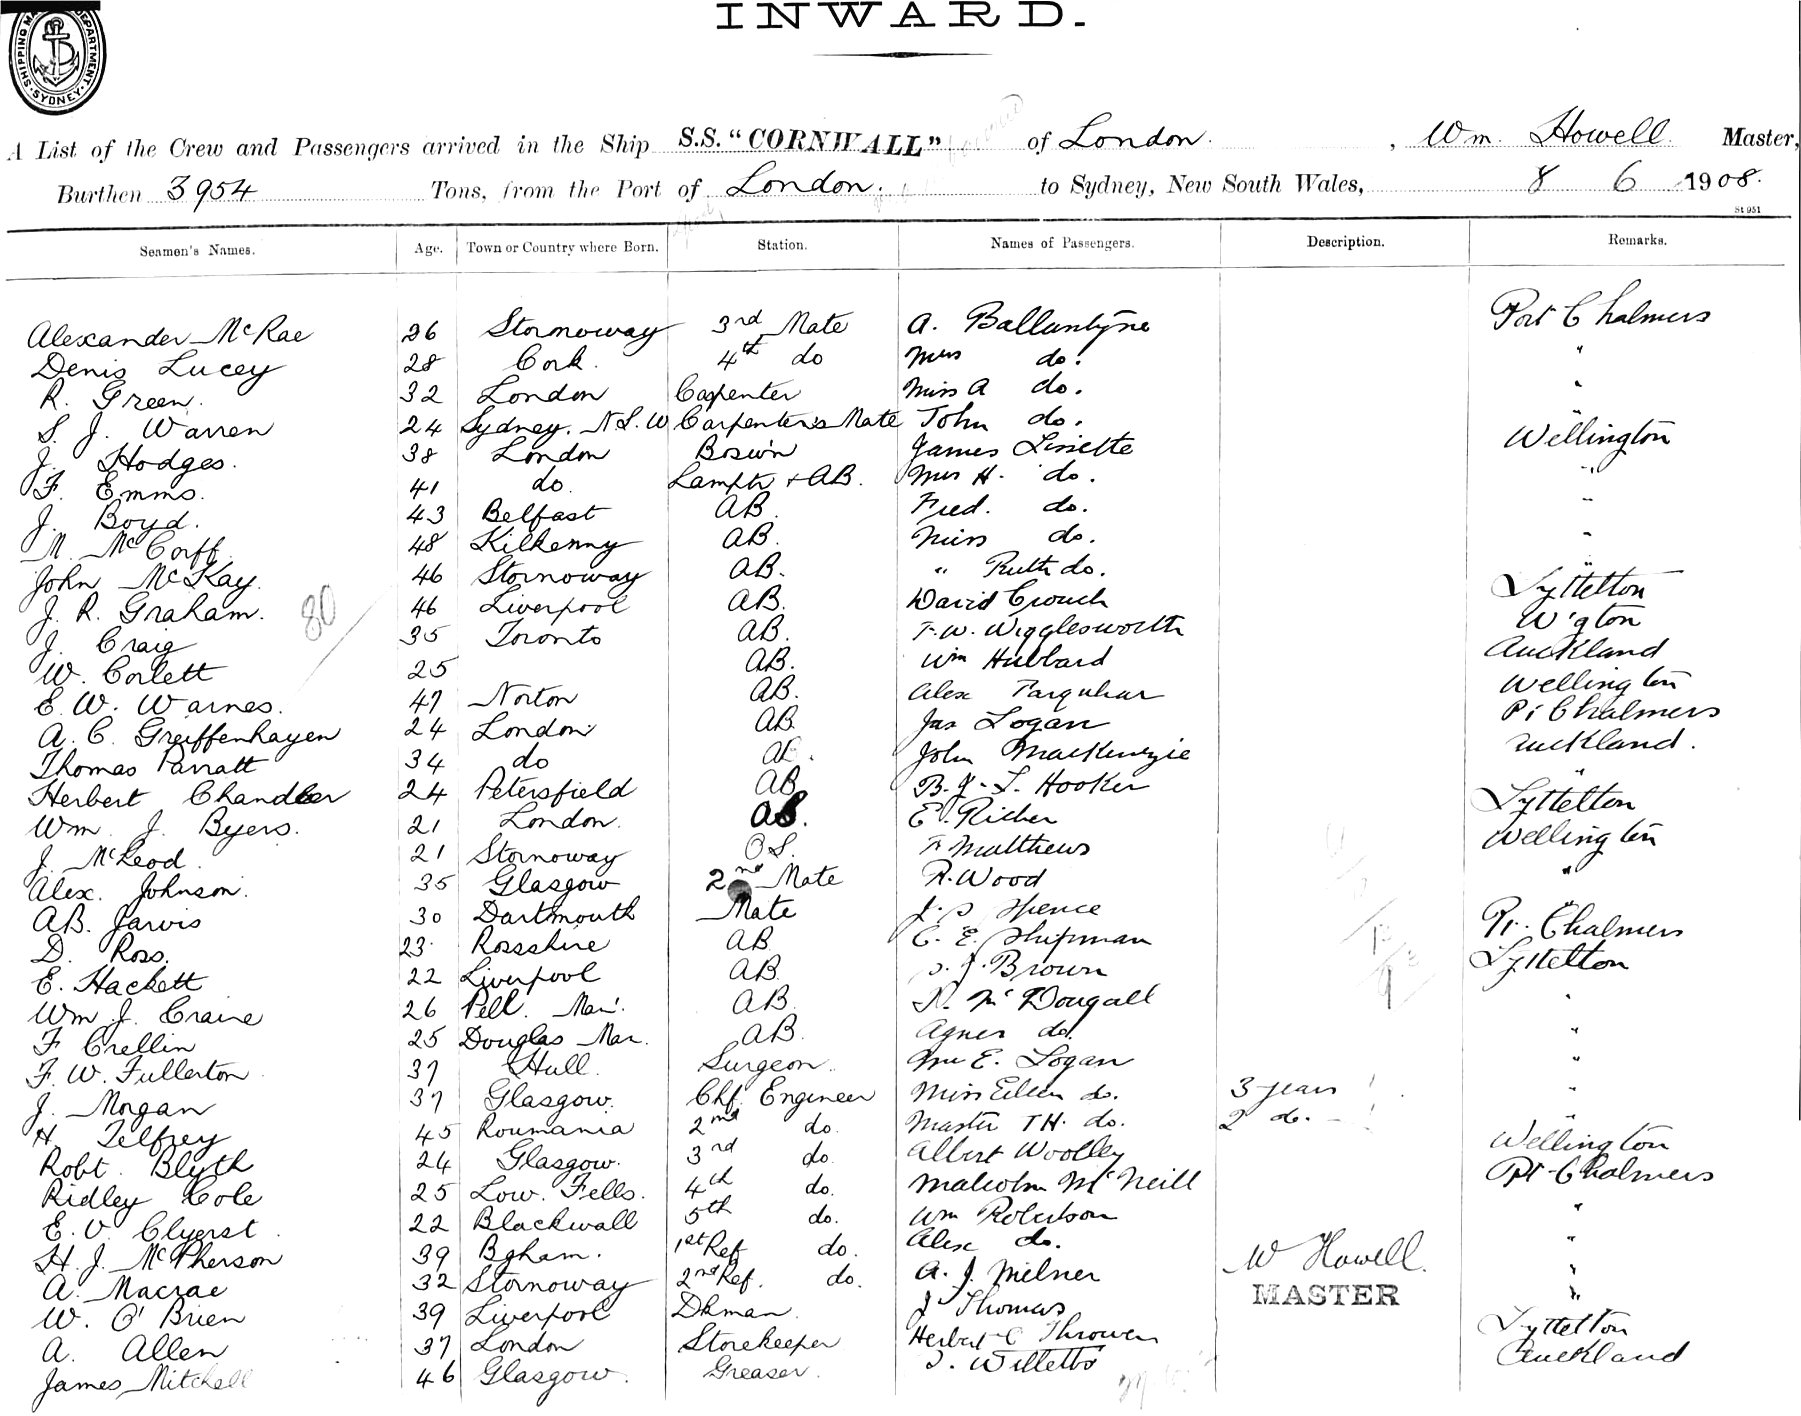 INWARD.
SHIPPING MASTER'S DEPARTMENT. SYDNEY.
A List of the Crew and Passengers arrived in the Ship S.S. "CORNWALL" of London. , Wm. Howell. Master,
Burthen 3954 Tons, from the Port of London. to Sydney, New South Wales, 8 6 1908.
St 951
Seamen's Names. Age. Town or Country where Born. Station. Names of Passengers. Description. Remarks.
Alexander McRae 26 Stornoway 3rd Mate A. Ballantyne Port Chalmers
Denis Lucey 28 Cork. 4th do Mrs do. "
R. Green. 32 London Carpenter Miss A do. "
S. J. Warren 24 Sydney. N.S.W Carpenter's Mate John do. "
J. Hodges. 38 London Bos'n James Lissette Wellington
F. Emms. 41 do. Lamptr + AB. Mrs H. do. "
J. Boyd. 43 Belfast AB. Fred. do. "
M. McCorff. 48 Kilkenny AB. Miss do. "
John McKay. 46 Stornoway AB. " Ruth do. "
J. R. Graham. 46 Liverpool AB. David Crouch Lyttelton
80
J. Craig 35 Toronto AB. F. W. Wigglesworth W'gton
W. Corlett 25 AB. Wm Hubbard Auckland
E. W. Warnes. 47 Norton AB. Alex Farquhar Wellington
A. C. Greiffenhagen 24 London AB. Jas Logan Pt Chalmers
Thomas Parratt 34 do AB. John MacKenzie Auckland.
Herbert Chandler 24 Petersfield AB B. J. L. Hooker "
Wm. J. Byers. 21 London. AB. E. Richer Lyttelton
J. McLeod. 21 Stornoway O.S. F Matthews Wellington
Alex. Johnson. 35 Glasgow 2nd Mate R. Wood "
AB. Jarvis 30 Dartmouth Mate J. S Spence "
D. Ross. 23 Rossshire AB. C. E. Shipman Pt. Chalmers
E. Hackett 22 Liverpool AB. J. Brown Lyttelton
Wm. J. Craine 26 Pell. Man. AB. McDougall "
F Crellin 25 Douglas Man. AB. Agnes do. "
F. W. Fullerton 37 Hull. Surgeon. E. Logan "
J. Morgan 37 Glasgow. Chf. Engineer Miss Eileen do. 3 years "
H. Telfrey 45 Roumania 2nd do. Master T H. do. 2 do. "
Robt. Blyth 24 Glasgow. 3rd do. Albert Woolley Wellington
Ridley Cole 25 Low. Fells. 4th do. Malcolm McNeill Pt Chalmers
E. V. Clyerst. 22 Blackwall 5th do. Wm Robertson "
H. J. McPherson 39 Bgham. 1st Ref do. Alex do. "
W Howell.
A. Macrae 32 Stornoway 2nd Ref. do. A. J. Milner "
MASTER
W. O'Brien 39 Liverpool Dkman. J Thomas "
A. Allen 37 London Storekeeper Herbert C Thrower Lyttelton
James Mitchell 46 Glasgow. Greaser. J. Willetts Auckland